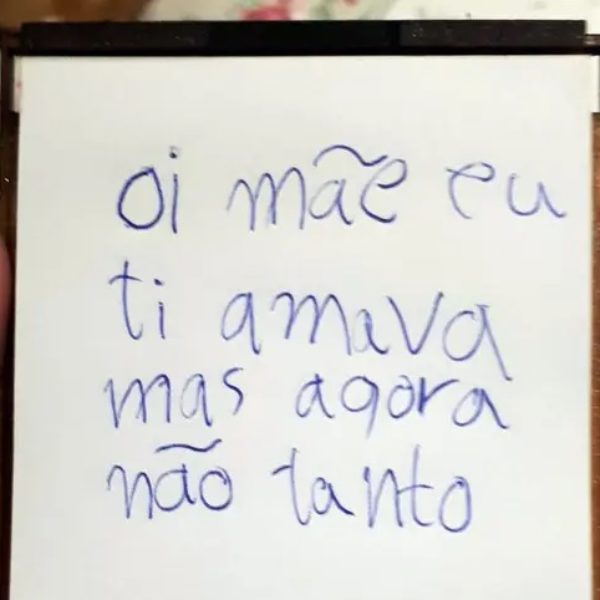 oi mãe eu
ti amava
mas agora
não tanto